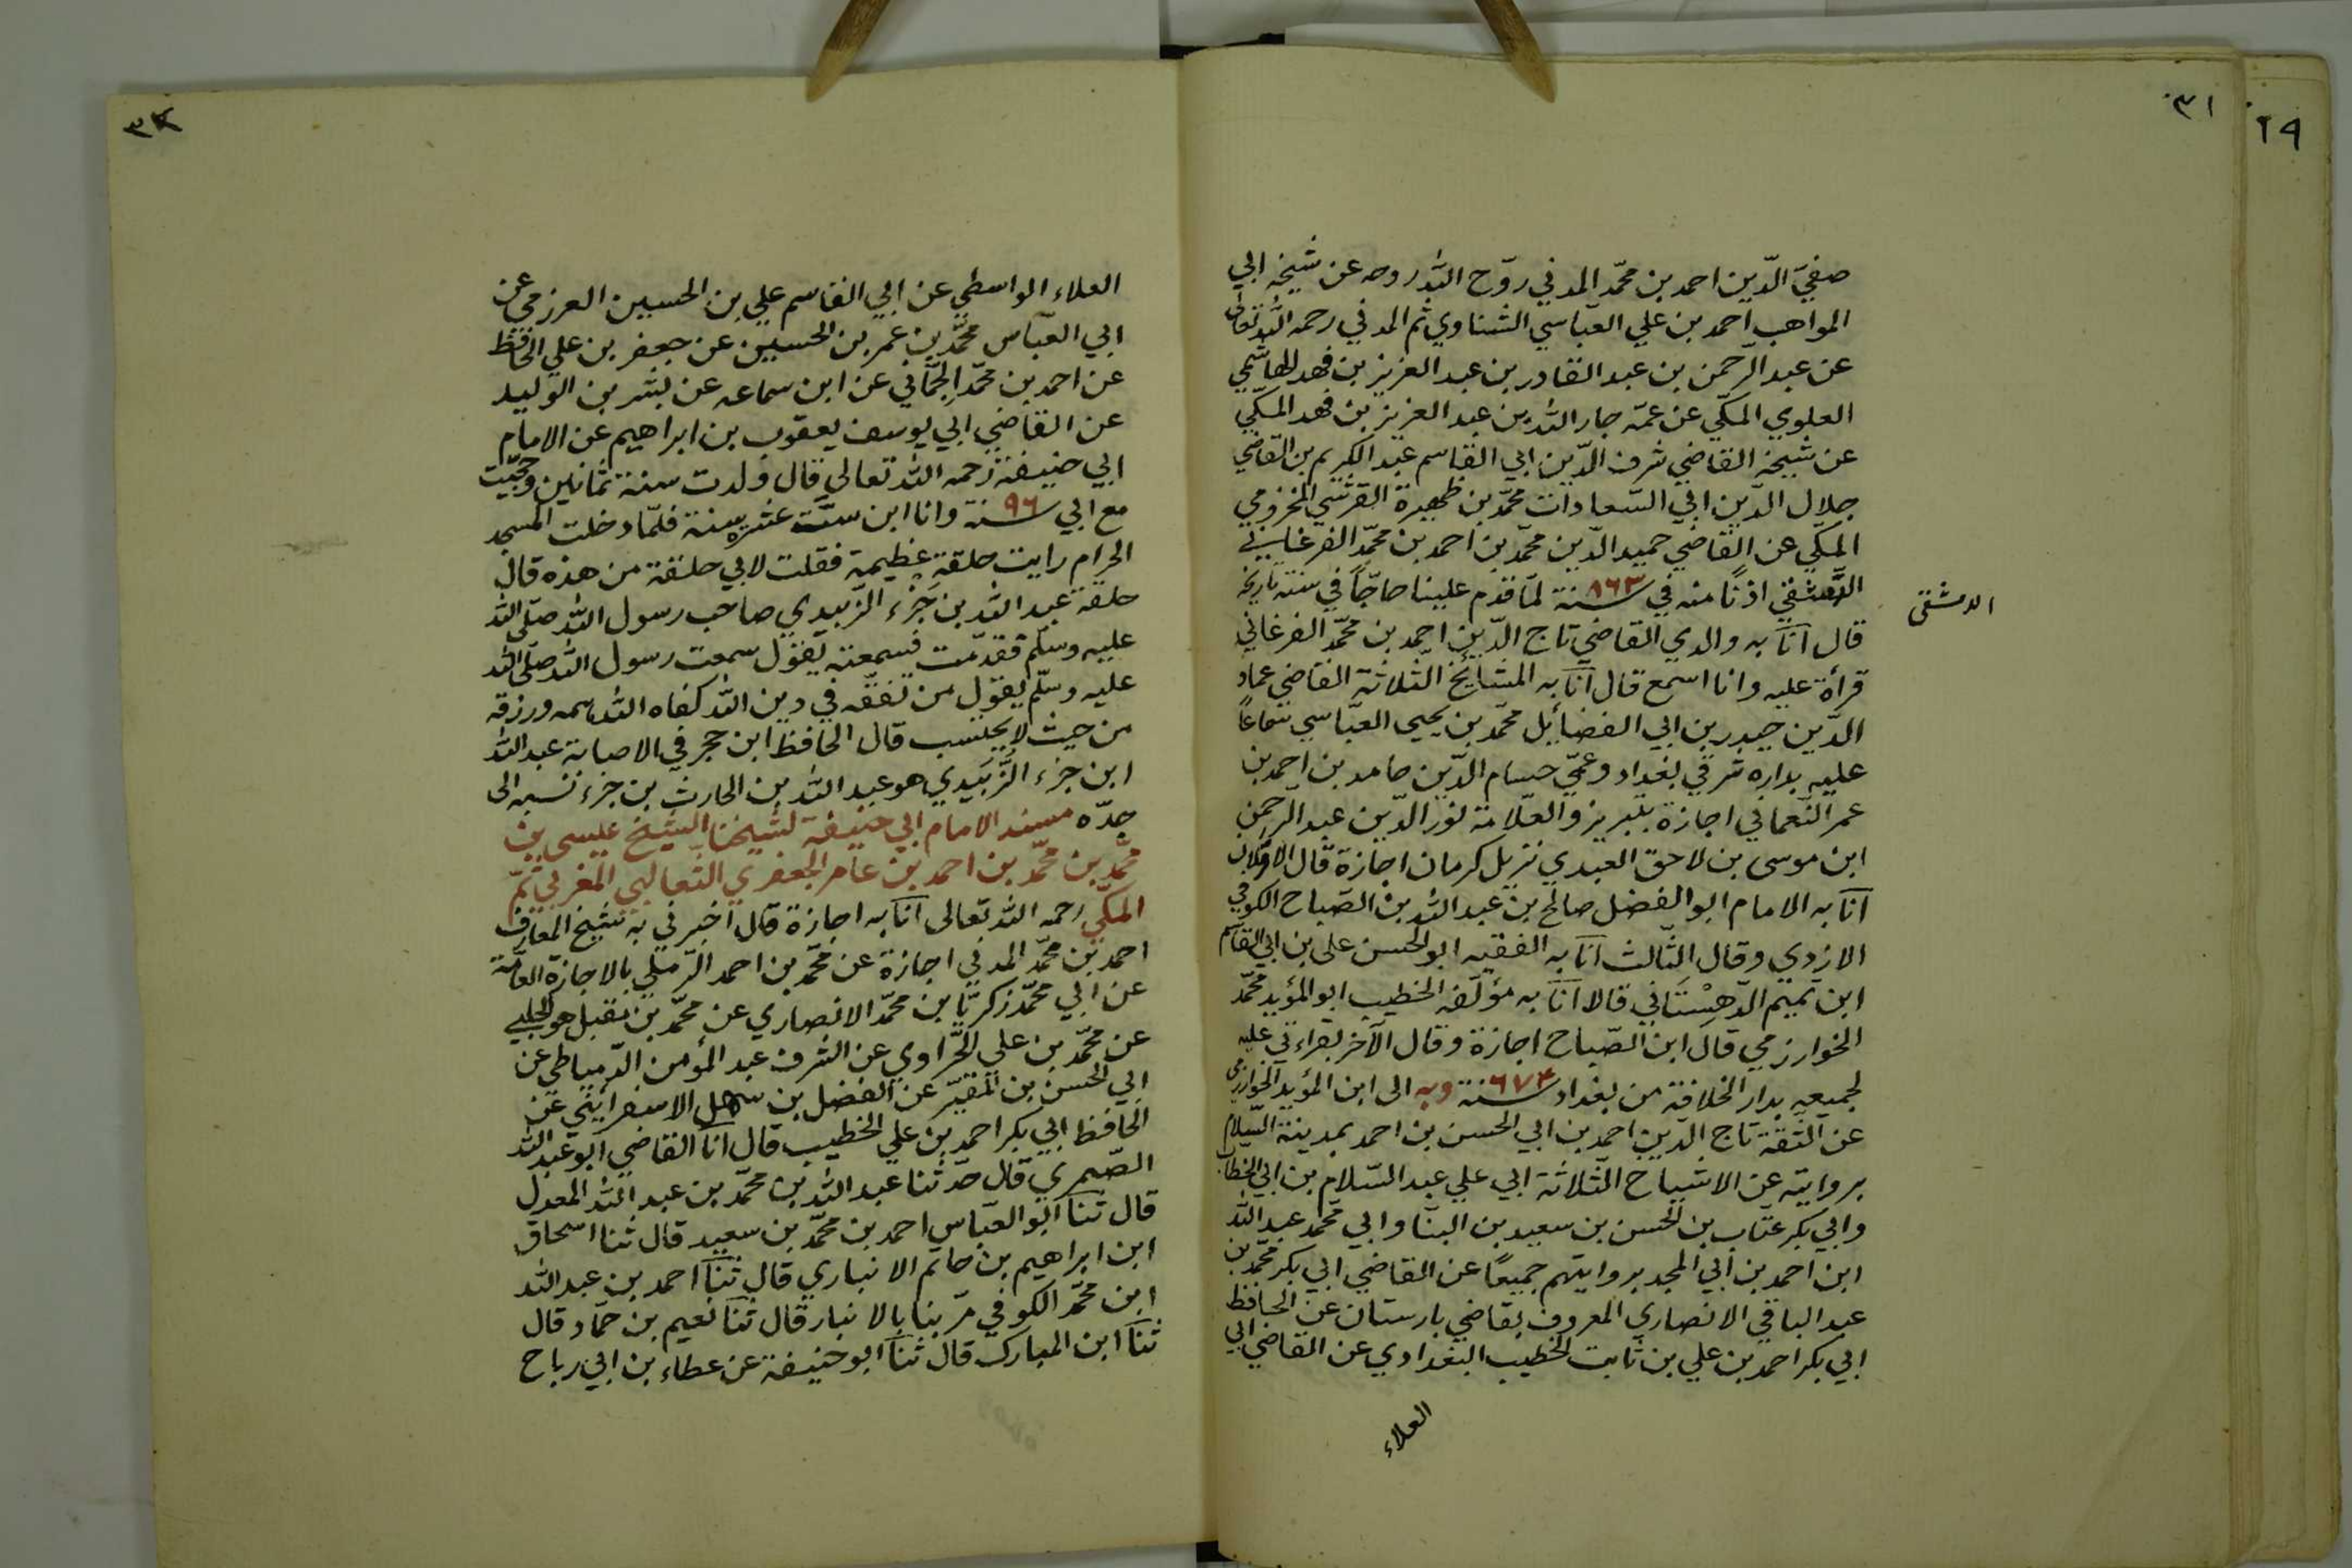 ٣١
صفيّ الدّين احمد بن محمّد المدني روّح الله روحه عن شيخه ابي
المواهب احمد بن علي العبّاسي الشناوي ثم المدني رحمه الله تعالى
عن عبد الرحمن بن عبد القادر بن عبد العزيز بن فهد الهاشمي
العلوي المكّي عن عمّه جار الله بن عبد العزيز بن فهد المكّي
عن شيخه القاضي شرف الدّين ابي القاسم عبد الكريم بن القاضي
جلال الدّين ابي السّعادات محمّد بن ظهيرة القرشي المخزومي
المكّي عن القاضي حميد الدّين محمّد بن احمد بن محمّد الفرغاني
الدّمشقي اذنًا منه في سنة ٨٦٣ لمّا قدم علينا حاجّاً في سنة تاريخه
الدمشقى
قال انآ به والدي القاضي تاج الدّين احمد بن محمّد الفرغاني
قرأة عليه وانا اسمع قال انآ به المشايخ الثلاثة القاضي عماد
الدّين حيدر بن ابي الفضايل محمّد بن يحيى العبّاسي سماعاً
عليه بداره شرقي بغداد وعمّي حسام الدّين حامد بن احمد بن
عمر النّعماني اجازة بتبريز والعلّامة نور الدّين عبد الرحمن
ابن موسى بن لاحق العبدي نزيل كرمان اجازة قال الاوّلان
انآ به الامام ابو الفضل صالح بن عبد الله بن الصّباح الكوفي
الازدي وقال الثّالث انآ به الفقيه ابو الحسن على بن ابي القاسم
ابن تميم الدّهِسْتَاني قالا انآ به مؤلّفه الخطيب ابو المؤيد محمّد
الخوارزمي قال ابن الصّباح اجازة وقال الآخر بقراءتي عليه
لجميعه بدار الخلافة من بغداد سنة ٦٧٤ وبه الى ابن المؤيد الخوارزمى
عن الثّقة تاج الدّين احمد بن ابي الحسن بن احمد بمدينة السّلام
بروايته عن الاشياخ الثّلاثة ابي علي عبد السّلام بن ابي الخطاب
وابي بكر عتّاب بن الحسن بن سعيد بن البنّا وابي محمّد عبد الله
ابن احمد بن ابي المجد بروايتهم جميعًا عن القاضي ابي بكر محمّد بن
عبد الباقي الانصاري المعروف بقاضي بارستان عن الحافظ
ابي بكر احمد بن علي بن ثابت الخطيب البغدادي عن القاضي ابي
العلاء
٢٩
٣٢
العلاء الواسطي عن ابي القاسم علي بن الحسين العرزمي عن
ابي العبّاس محمّد بن عمر بن الحسين عن جعفر بن علي الحافظ
عن احمد بن محمّد الحِمّاني عن ابن سماعه عن بشر بن الوليد
عن القاضي ابي يوسف يعقوب بن ابراهيم عن الامام
ابي حنيفة رحمه الله تعالى قال ولدت سنة ثمانين وحججت
مع ابي سنة ٩٦ وانا ابن ستّ عشره سنة فلمّا دخلت المسجد
الحرام رايت حلقة عظيمة فقلت لابي حلقة من هذه قال
حلقة عبد الله بن جَزْء الزّبيدي صاحب رسول الله صلّى الله
عليه وسلّم فقدّمت فسمعته يقول سمعت رسول الله صلّى الله
عليه وسلّم يقول من تفقّه في دين الله كفاه الله همه ورزقه
من حيث لا يحتسب قال الحافظ ابن حجر في الاصابة عبد الله
ابن جزء الزَّبَيدي هو عبد الله بن الحارث بن جزء نسبه الى
جدّه مسند الامام ابي حنيفة لشيخنا الشّيخ عيسى بن
محمّد بن محمّد بن احمد بن عامر الجعفري الثّعالبي المغربي ثمّ
المكّي رحمه الله تعالى انآ به اجازة قال اخبرني به شيخ المعارف
احمد بن محمّد المدني اجازة عن محمّد بن احمد الرّملي بالاجازة العآمة
عن ابي محمّد زكريّا بن محمّد الانصاري عن محمّد بن مقبل هو الحلبي
عن محمّد بن علي الحَرّاوي عن الشرف عبد المؤمن الدّمياطي عن
ابي الحسن بن المقيّر عن الفضل بن سهل الاسفرايني عن
الحافظ ابي بكر احمد بن علي الخطيب قال انآ القاضي ابو عبد الله
الصّيمري قال حدّثنا عبد الله بن محمّد بن عبد الله المعدل
قال ثنآ ابو العبّاس احمد بن محمّد بن سعيد قال ثنا اسحاق
ابن ابراهيم بن حاتم الانباري قال ثنآ احمد بن عبد الله
ابن محمّد الكوفي مرّ بنا بالانبار قال ثنآ نعيم بن حمّاد قال
ثنآ ابن المبارك قال ثنآ ابو حنيفة عن عطاء بن ابي رباح